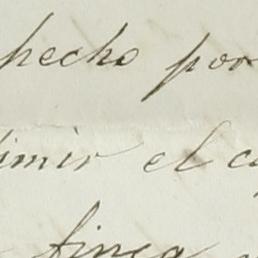 hecho por
imir el c
finca